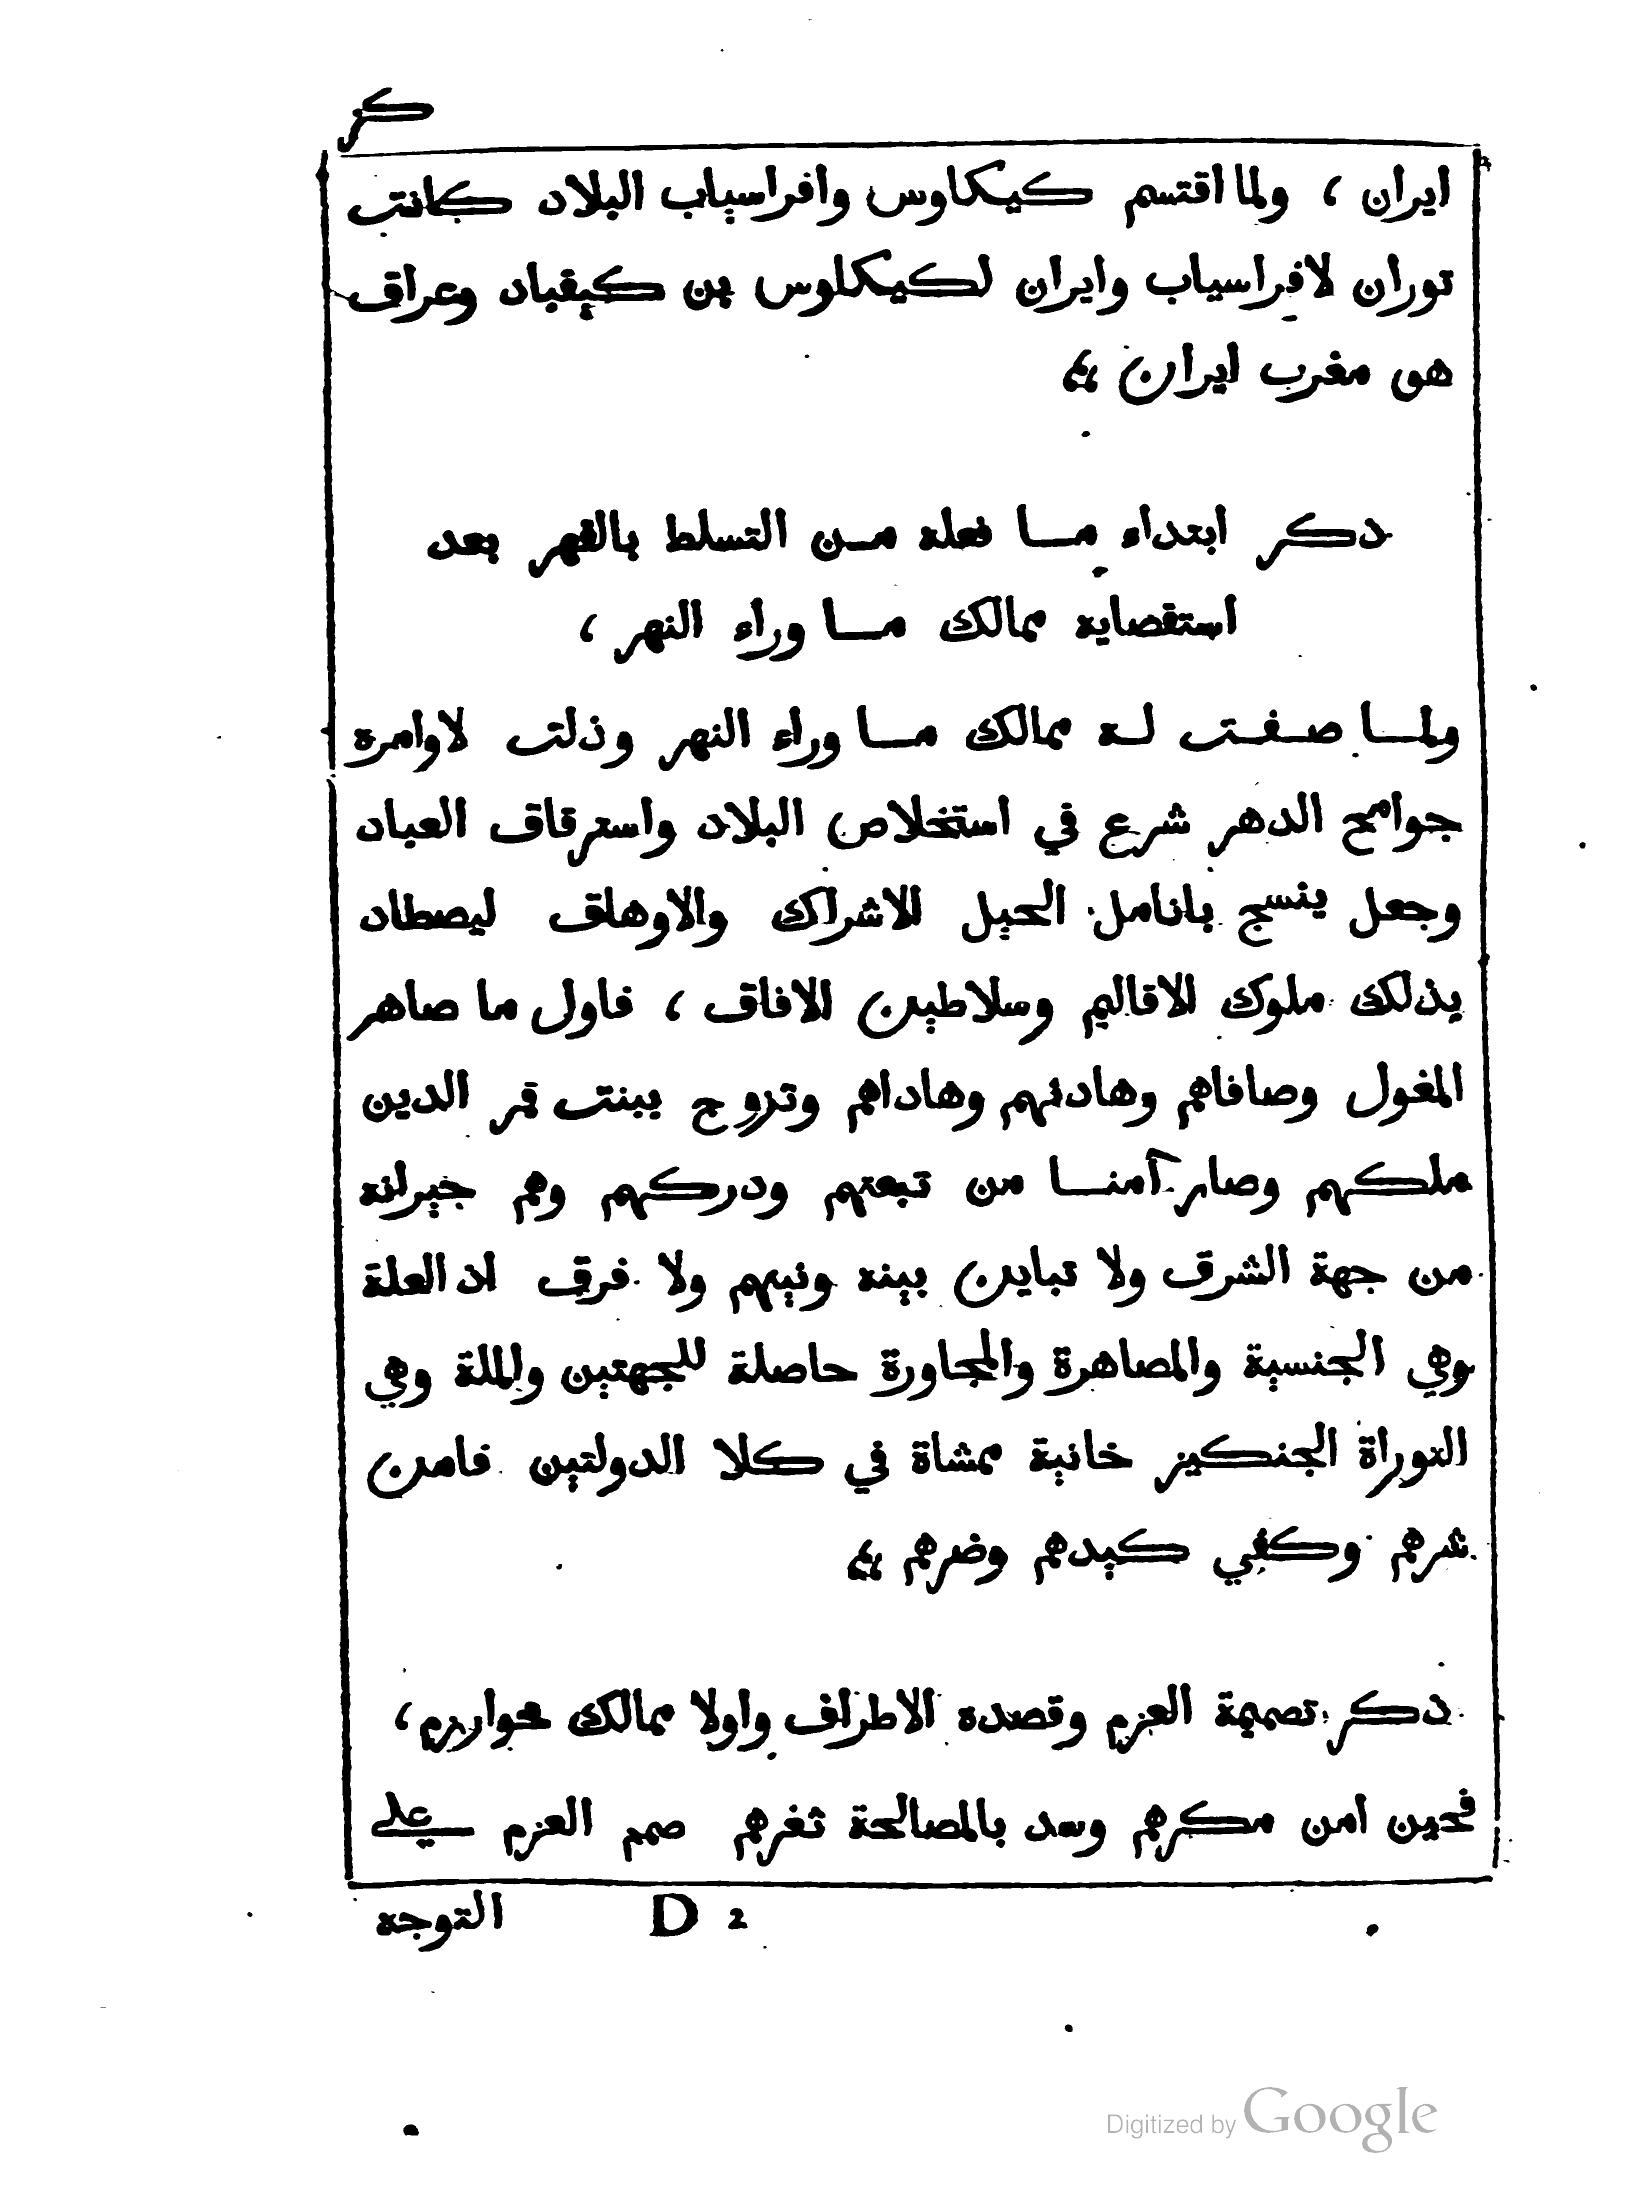 كز
ايران ، ولما اقتسم كيكاوس وافراسياب البلاد كانت
توران لافراسياب وايران لكيكاوس بن كيقباد وعراق
هو مغرب ايران ؛،
ذكر ابتداء ما فعله من التسلط بالقهر بعد
استقصايه ممالك ما وراء النهر ،
ولما صفت له ممالك ما وراء النهر وذلت لاوامره
جوامح الدهر شرع في استخلاص البلاد واسترقاق العباد
وجعل ينسج بانامل الحيل الاشراك والاوهاق ليصطاد
بذلك ملوك الاقاليم وسلاطين الافاق ، فاول ما صاهر
المغول وصافاهم وهادنهم وهاداهم وتزوج ببنت قمر الدين
ملكهم وصار آمنا من تبعتهم ودركهم وهم جيرانه
من جهة الشرق ولا تباين بينه وبينهم ولا فرق اذ العلة
وهي الجنسية والمصاهرة والمجاورة حاصلة للجهتين والملة وهي
التوراة الجنكيز خانية ممشاة في كلا الدولتين فامن
شرهم وكفي كيدهم وضرهم ؛،
ذكر تصميمة العزم وقصده الاطراف واولا ممالك خوارزم ،
فحين امن مكرهم وسد بالمصالحة ثغرهم صمم العزم علي
التوجه D 2
Digitized by Google